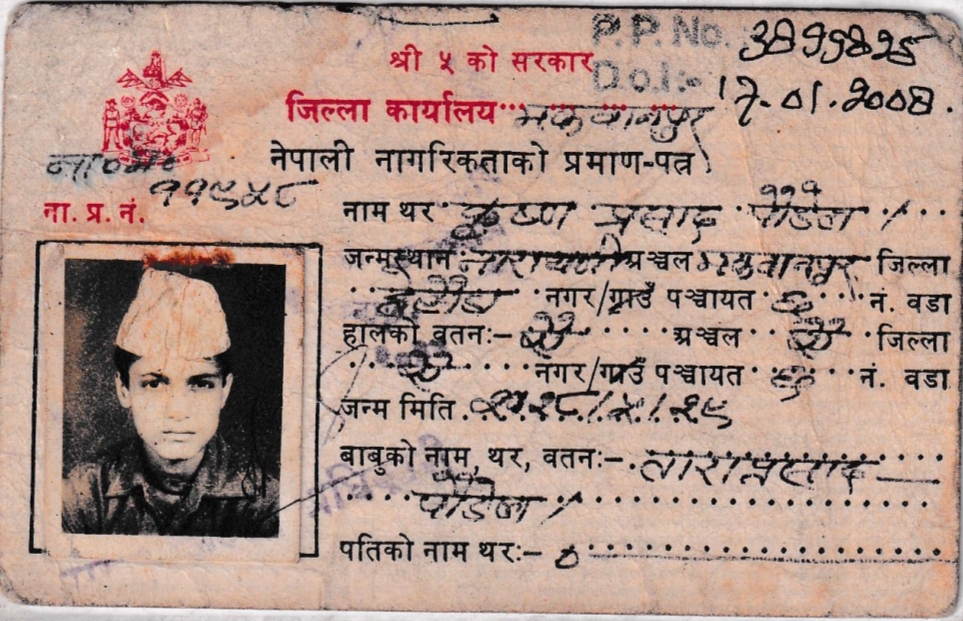 P.P. No. 3899825
श्री ५ को सरकार
D.o.I:- 17.01.2008.
जिल्ला कार्यालय मकवानपुर
नेपाली नागरिकताको प्रमाण-पत्र
११९५८
ना. प्र. नं.
नाम थर कृष्ण प्रसाद पौडेल ।
जन्मस्थान: नारायणी अञ्चल मकवानपुर जिल्ला
नगर/गाउँ पञ्चायत नं. वडा
हालको वतन:- ऐ अञ्चल ऐ जिल्ला
ऐ नगर/गाउँ पञ्चायत नं. वडा
जन्म मिति २०२८।५।२९
बाबुको नाम, थर, वतन:- ताराप्रसाद
पौडेल ।
पतिको नाम थर:- ०